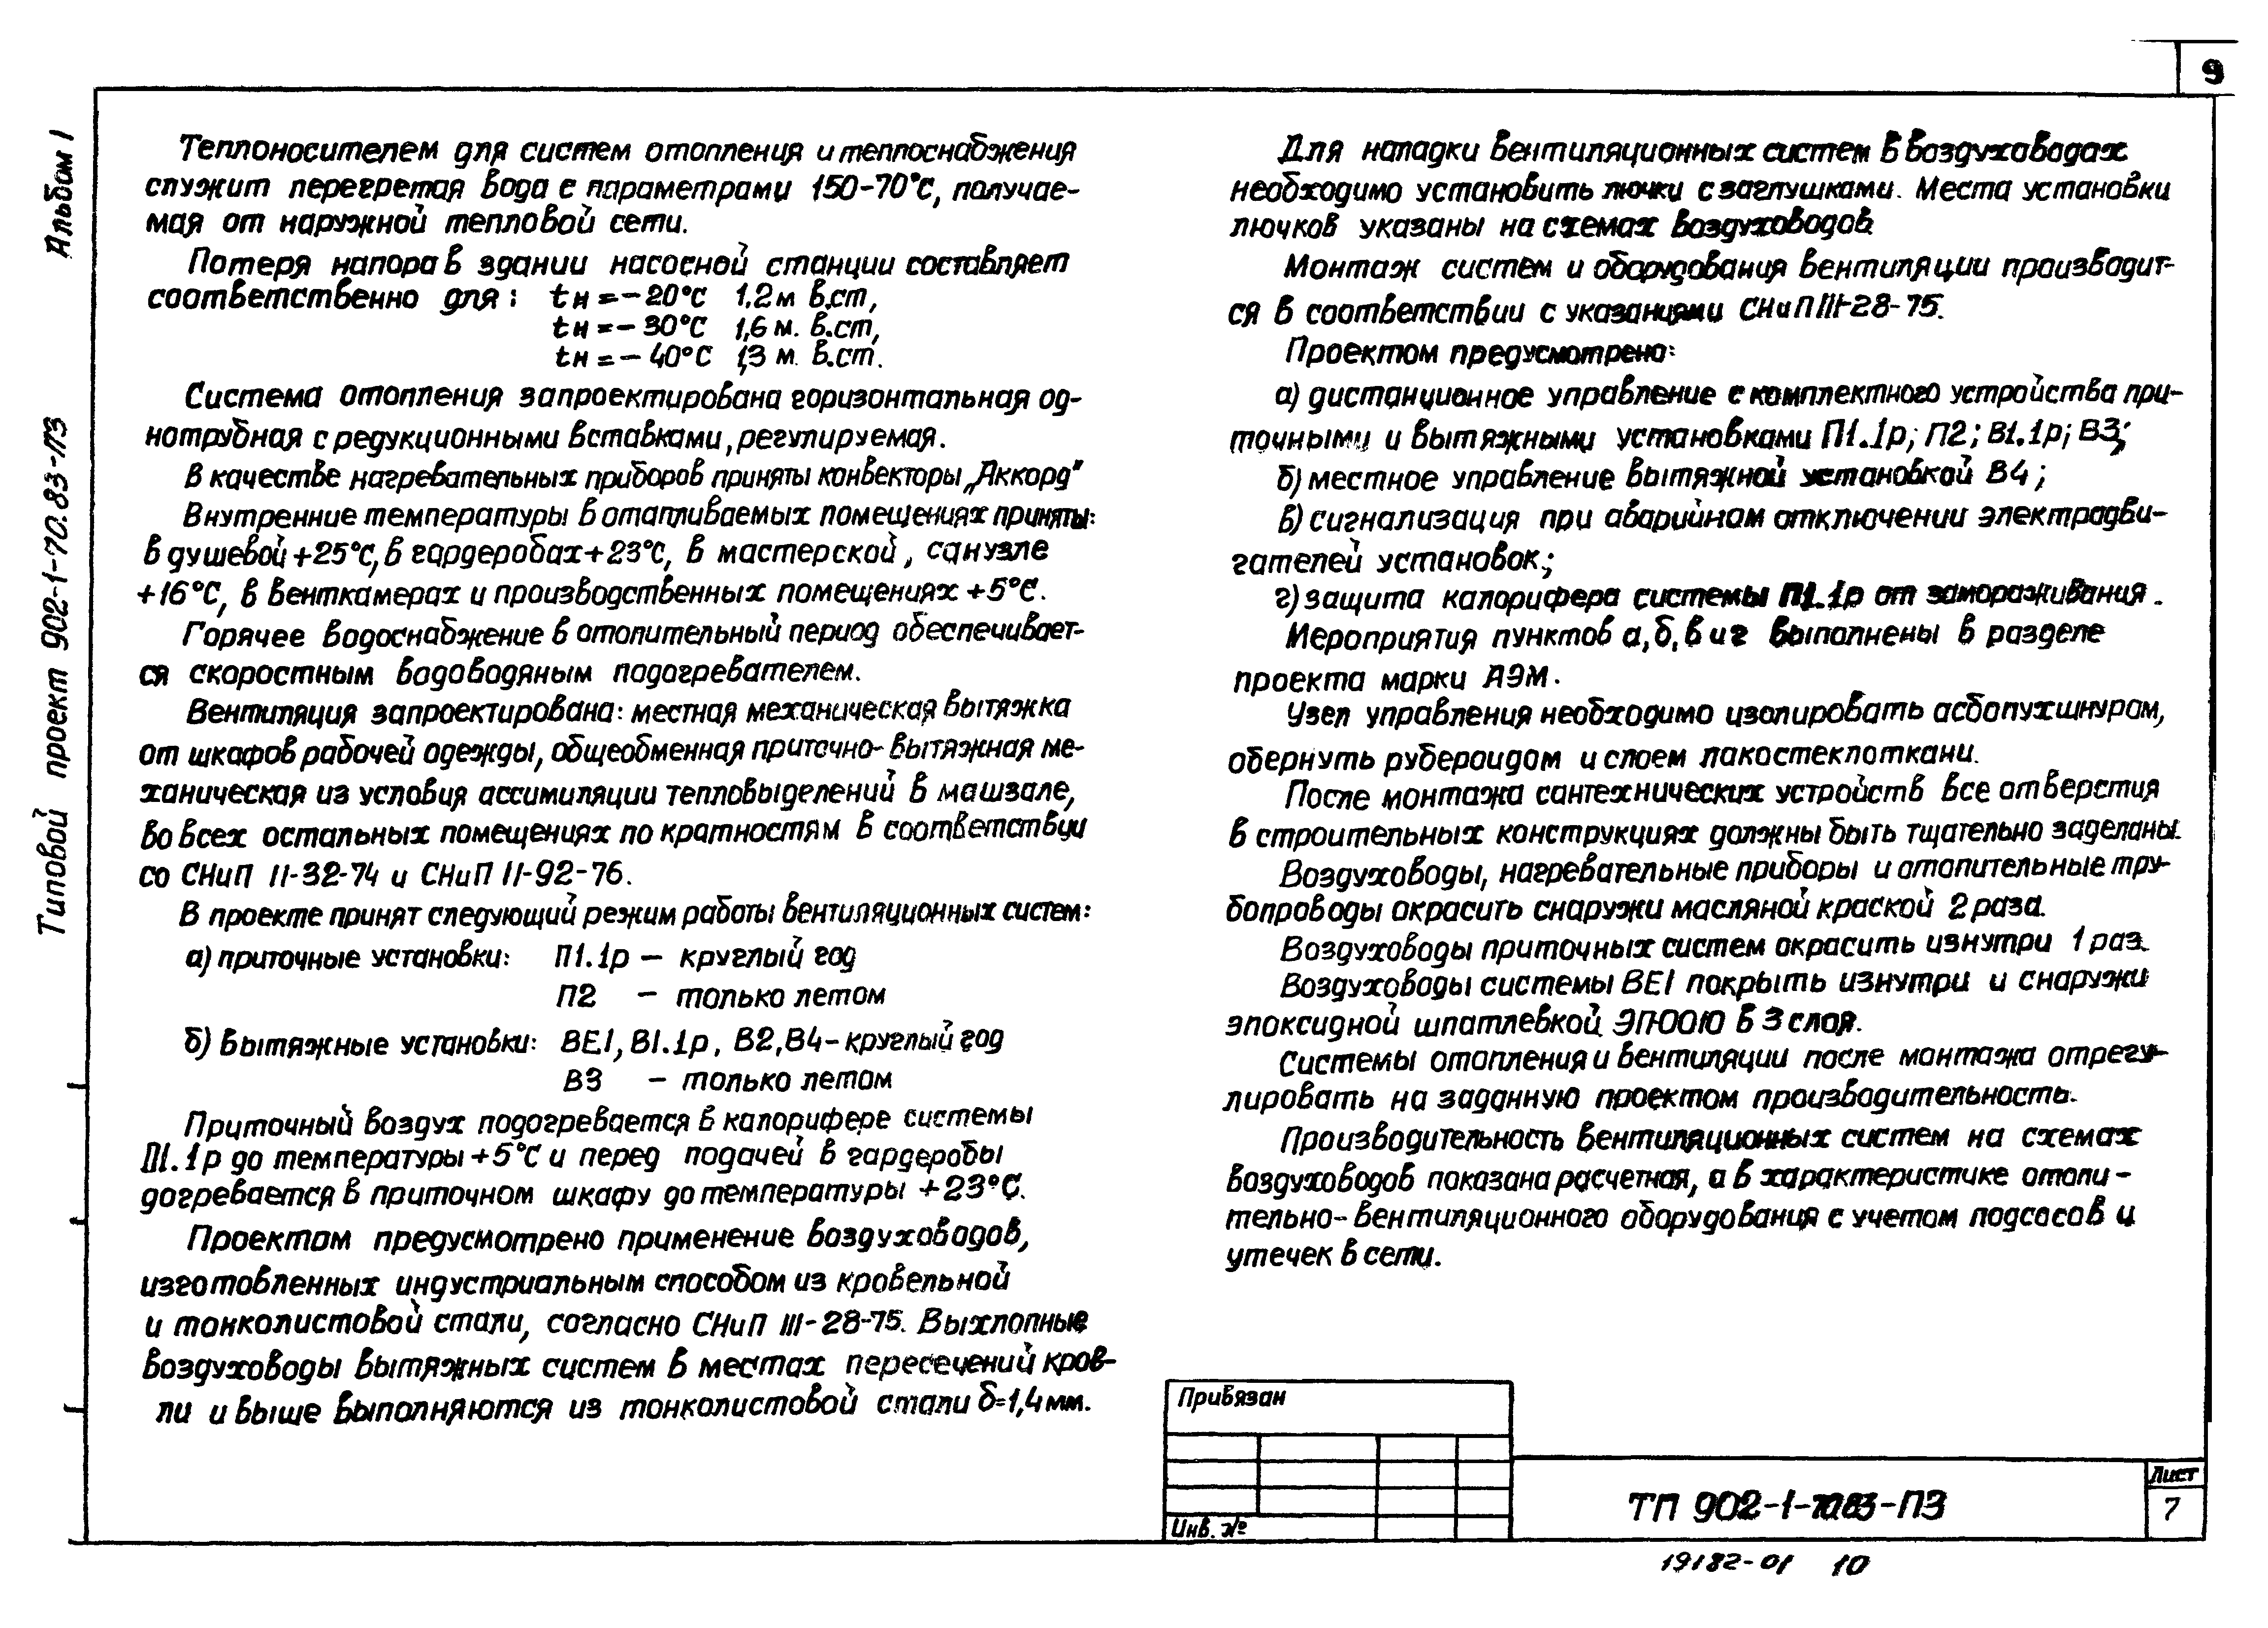 9
Альбом I
Типовой проект 902-1-70.83-ПЗ
Теплоносителем для систем отопления и теплоснабжения
служит перегретая вода с параметрами 150-70°С, получае-
мая от наружной тепловой сети.
Потеря напора в здании насосной станции составляет
соответственно для: tн=-20°С 1.2м в.ст,
tн=-30°С 1,6 м. в.ст,
tн=-40°С 1,3 м. в.ст.
Система отопления запроектирована горизонтальная од-
нотрубная с редукционными вставками, регулируемая.
В качестве нагревательных приборов приняты конвекторы „Аккорд"
Внутренние температуры в отапливаемых помещениях приняты:
в душевой +25°С, в гардеробах +23°С, в мастерской, санузле
+16°С, в венткамерах и производственных помещениях +5°С.
Горячее водоснабжение в отопительный период обеспечивает-
ся скоростным водоводяным подогревателем.
Вентиляция запроектирована: местная механическая вытяжка
от шкафов рабочей одежды, общеобменная приточно-вытяжная ме-
ханическая из условия ассимиляции тепловыделений в машзале,
во всех остальных помещениях по кратностям в соответствии
со СНиП II-32-74 и СНиП II-92-76.
В проекте принят следующий режим работы вентиляционных систем:
а) приточные установки: П1.1р — круглый год
П2 — только летом
б) вытяжные установки: ВЕ1, В1.1р, В2, В4- круглый год
В3 — только летом
Приточный воздух подогревается в калорифере системы
П1.1р до температуры +5°С и перед подачей в гардеробы
догревается в приточном шкафу до температуры +23°С.
Проектом предусмотрено применение воздуховодов,
изготовленных индустриальным способом из кровельной
и тонколистовой стали, согласно СНиП III-28-75. Выхлопные
воздуховоды вытяжных систем в местах пересечений кров-
ли и выше выполняются из тонколистовой стали δ=1,4мм.
Для наладки вентиляционных систем в воздуховодах
необходимо установить лючки с заглушками. Места установки
лючков указаны на схемах воздуховодов.
Монтаж систем и оборудования вентиляции производит-
ся в соответствии с указаниями СНиП III-28-75.
Проектом предусмотрено:
а) дистанционное управление с комплектного устройства при-
точными и вытяжными установками П1.1р; П2; В1.1р; В3;
б) местное управление вытяжной установкой В4;
в) сигнализация при аварийном отключении электродви-
гателей установок;
г) защита калорифера системы П1.1р от замораживания.
Мероприятия пунктов а, б, в и г выполнены в разделе
проекта марки АЭМ.
Узел управления необходимо изолировать асбопухшнуром,
обернуть рубероидом и слоем лакостеклоткани.
После монтажа сантехнических устройств все отверстия
в строительных конструкциях должны быть тщательно заделаны.
Воздуховоды, нагревательные приборы и отопительные тру-
бопроводы окрасить снаружи масляной краской 2 раза.
Воздуховоды приточных систем окрасить изнутри 1 раз.
Воздуховоды системы ВЕ1 покрыть изнутри и снаружи
эпоксидной шпатлевкой ЭП-0010 в 3 слоя.
Системы отопления и вентиляции после монтажа отрегу-
лировать на заданную проектом производительность.
Производительность вентиляционных систем на схемах
воздуховодов показана расчетная, а в характеристике отопи-
тельно-вентиляционного оборудования с учетом подсосов и
утечек в сети.
Привязан
Инв. №
ТП 902-1-70.83-ПЗ
Лист
7
19182-01 10